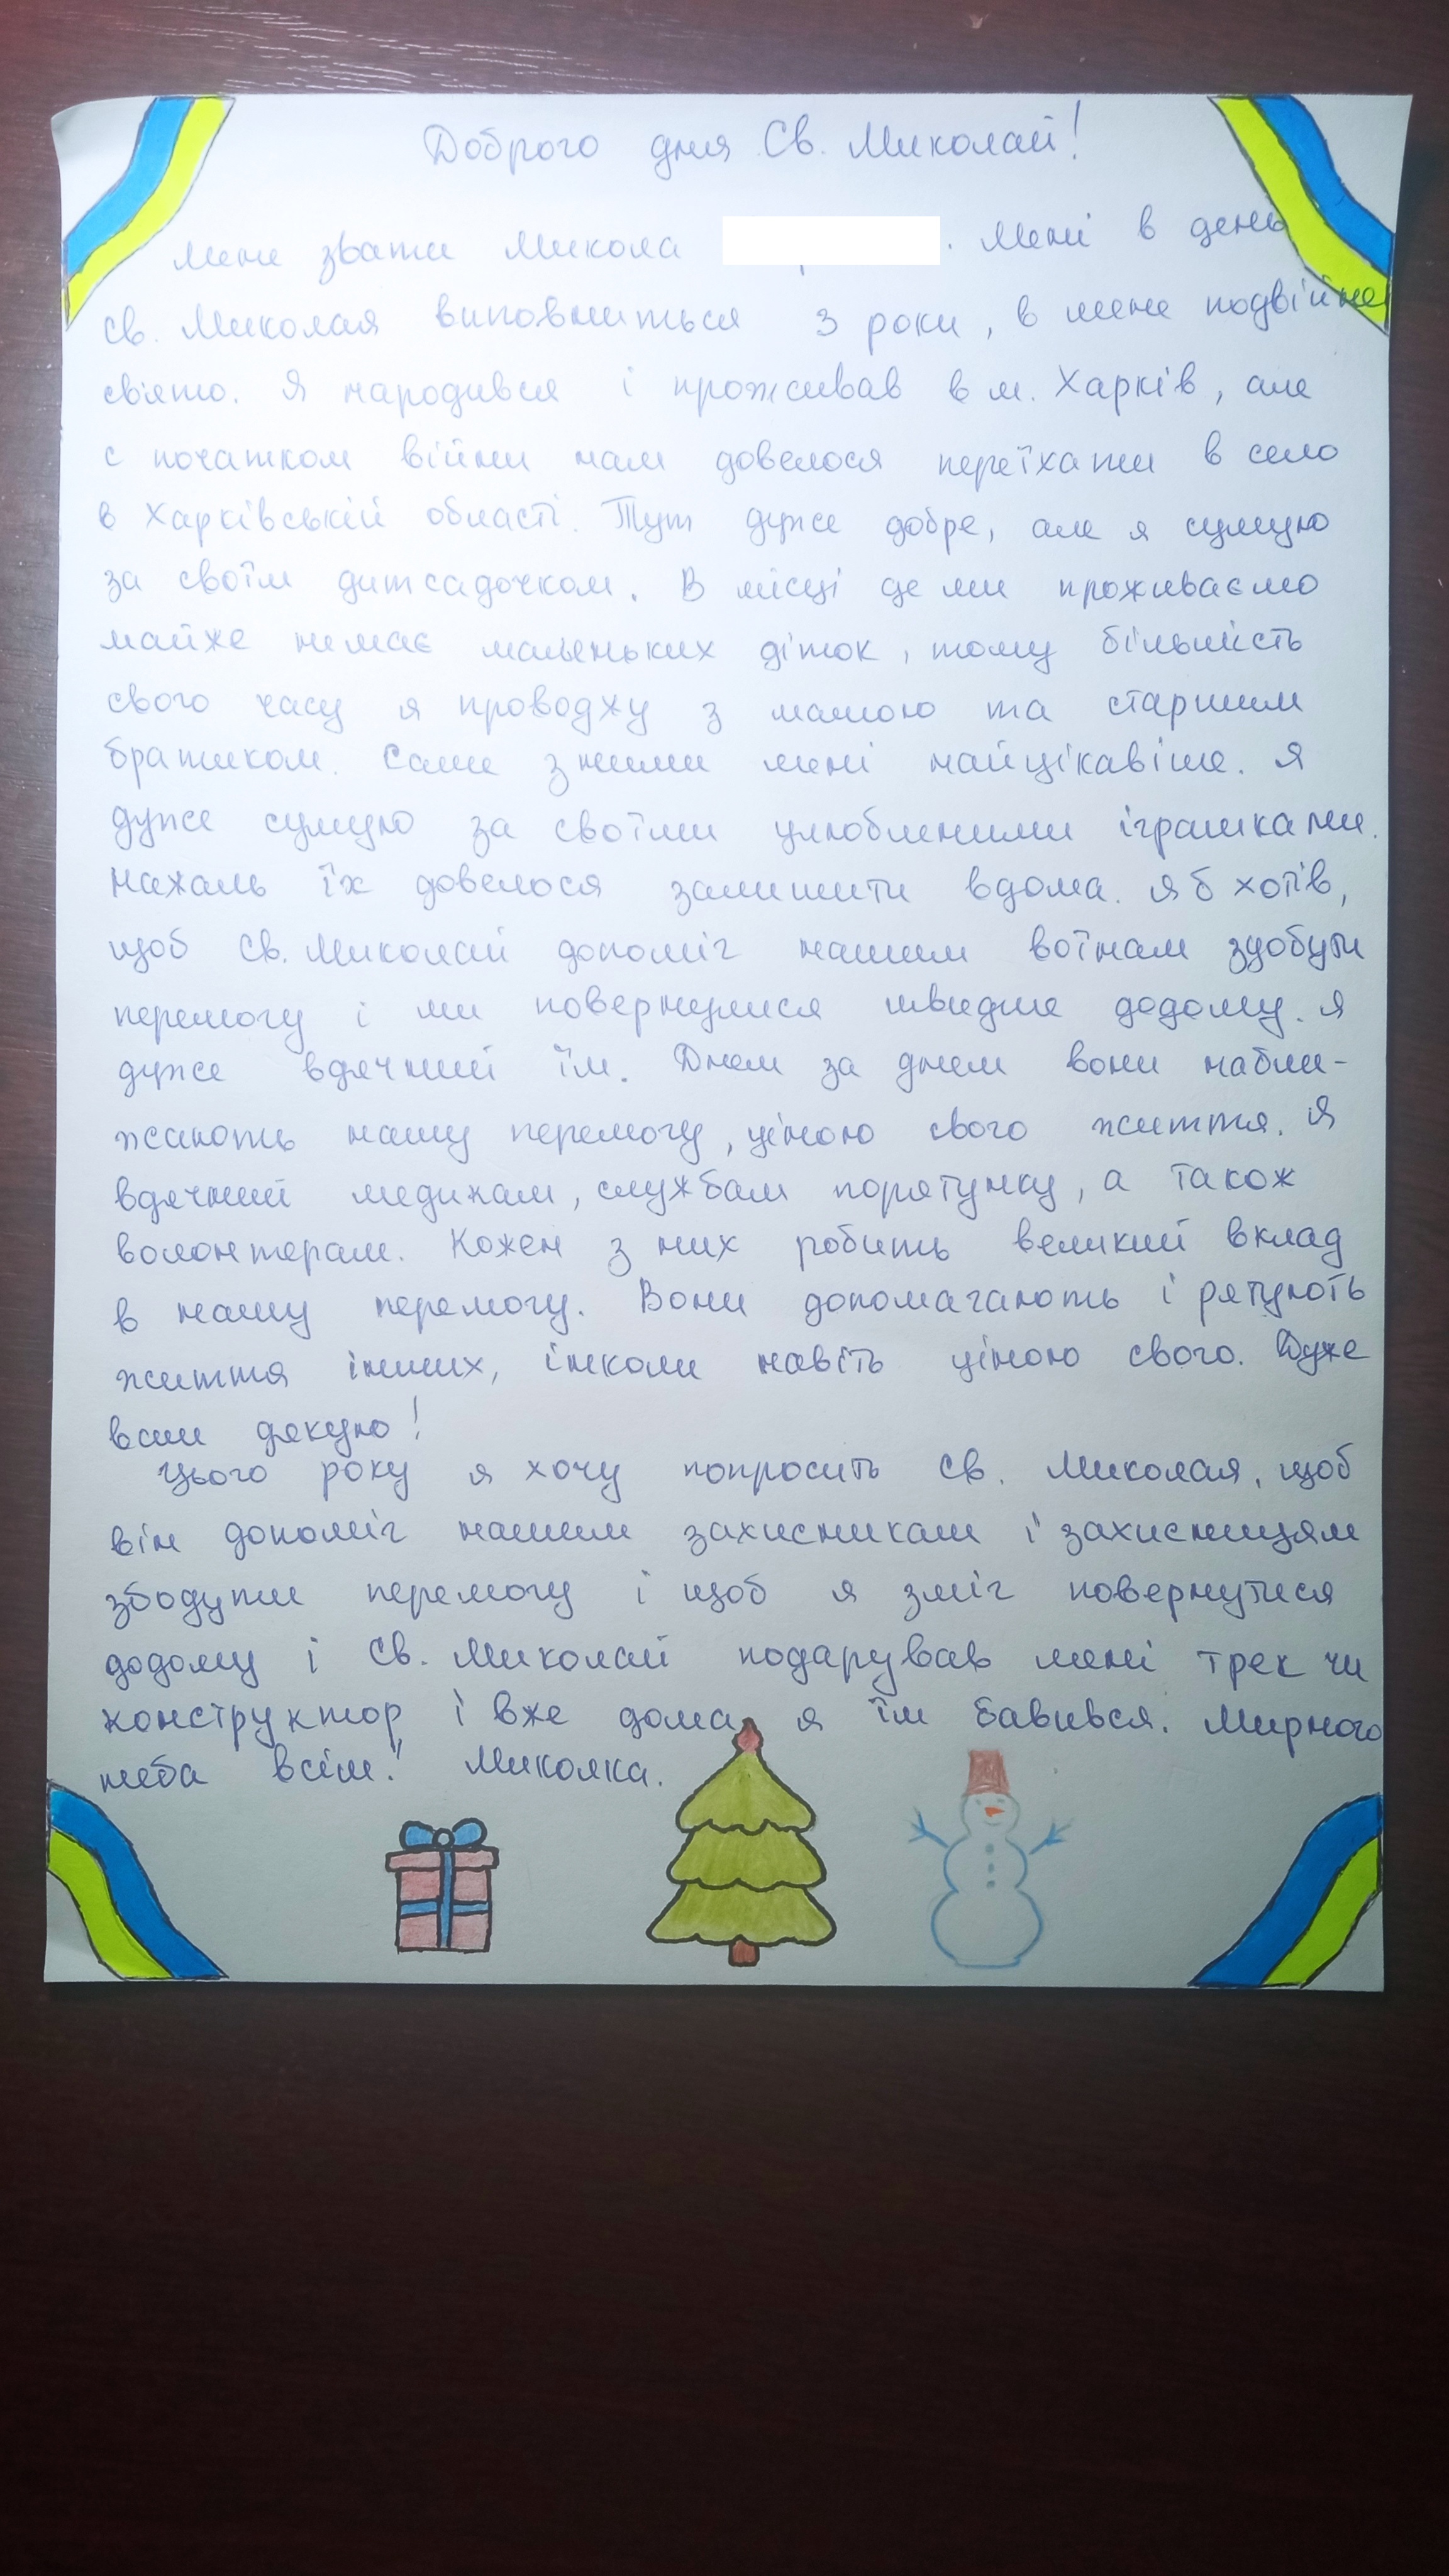 Доброго дня Св. Миколай!
Мене звати Микола . Мені в день
Св. Миколая виповниться 3 роки, в мене подвійне
свято. Я народився і проживав в м. Харків, але
с початком війни нам довелося переїхати в село
в Харківській області. Тут дуже добре, але я сумую
за своїм дитсадочком. В місці де ми проживаємо
майже немає маленьких діток, тому більшість
свого часу я проводжу з мамою та старшим
братиком. Саме з ними мені найцікавіше. Я
дуже сумую за своїми улюбленими іграшками.
Нажаль їх довелося залишити вдома. Я б хотів,
щоб Св. Миколай допоміг нашим воїнам здобути
перемогу і ми повернулися швидше додому. Я
дуже вдячний їм. Днем за днем вони набли-
жають нашу перемогу, ціною свого життя. Я
вдячний медикам, службам порятунку, а також
волонтерам. Кожен з них робить великий вклад
в нашу перемогу. Вони допомагають і рятують
життя інших, інколи навіть ціною свого. Дуже
вам дякую!
Цього року я хочу попросить Св. Миколая, щоб
він допоміг нашим захисникам і захисницям
збодути перемогу і щоб я зміг повернутися
додому і Св. Миколай подарував мені трек чи
конструктор і вже дома я їм бавився. Мирного
неба всім! Миколка.